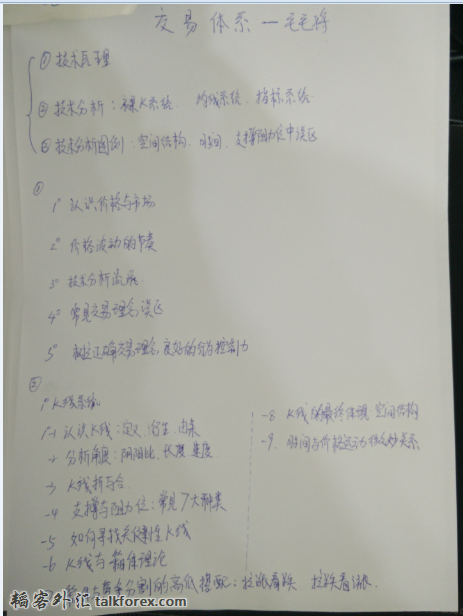 交易体系 — 毛毛将
① 技术原理
② 技术分析：裸K系统、均线系统、指标系统
③ 技术分析图例：空间结构、时间、支撑阻力位中误区
①
1° 认识价格与市场
2° 价格波动的节奏
3° 技术分析流派
4° 常见交易理念误区
5° 树立正确交易理念，良好的行为控制力
②
1° K线系统
1-1 认识K线：定义、衍生、由来
-2 分析角度：阴阳比、长度、速度
-3 K线拆与合
-4 支撑与阻力位：常见7大种类
-5 如何寻找关键性K线
-6 K线与箱体理论
分割的高低搭配：拉涨看跌 拉跌看涨
-8 K线的最终体现 空间结构
-9 时间与价格运动的微妙关系
韬客外汇 talkforex.com